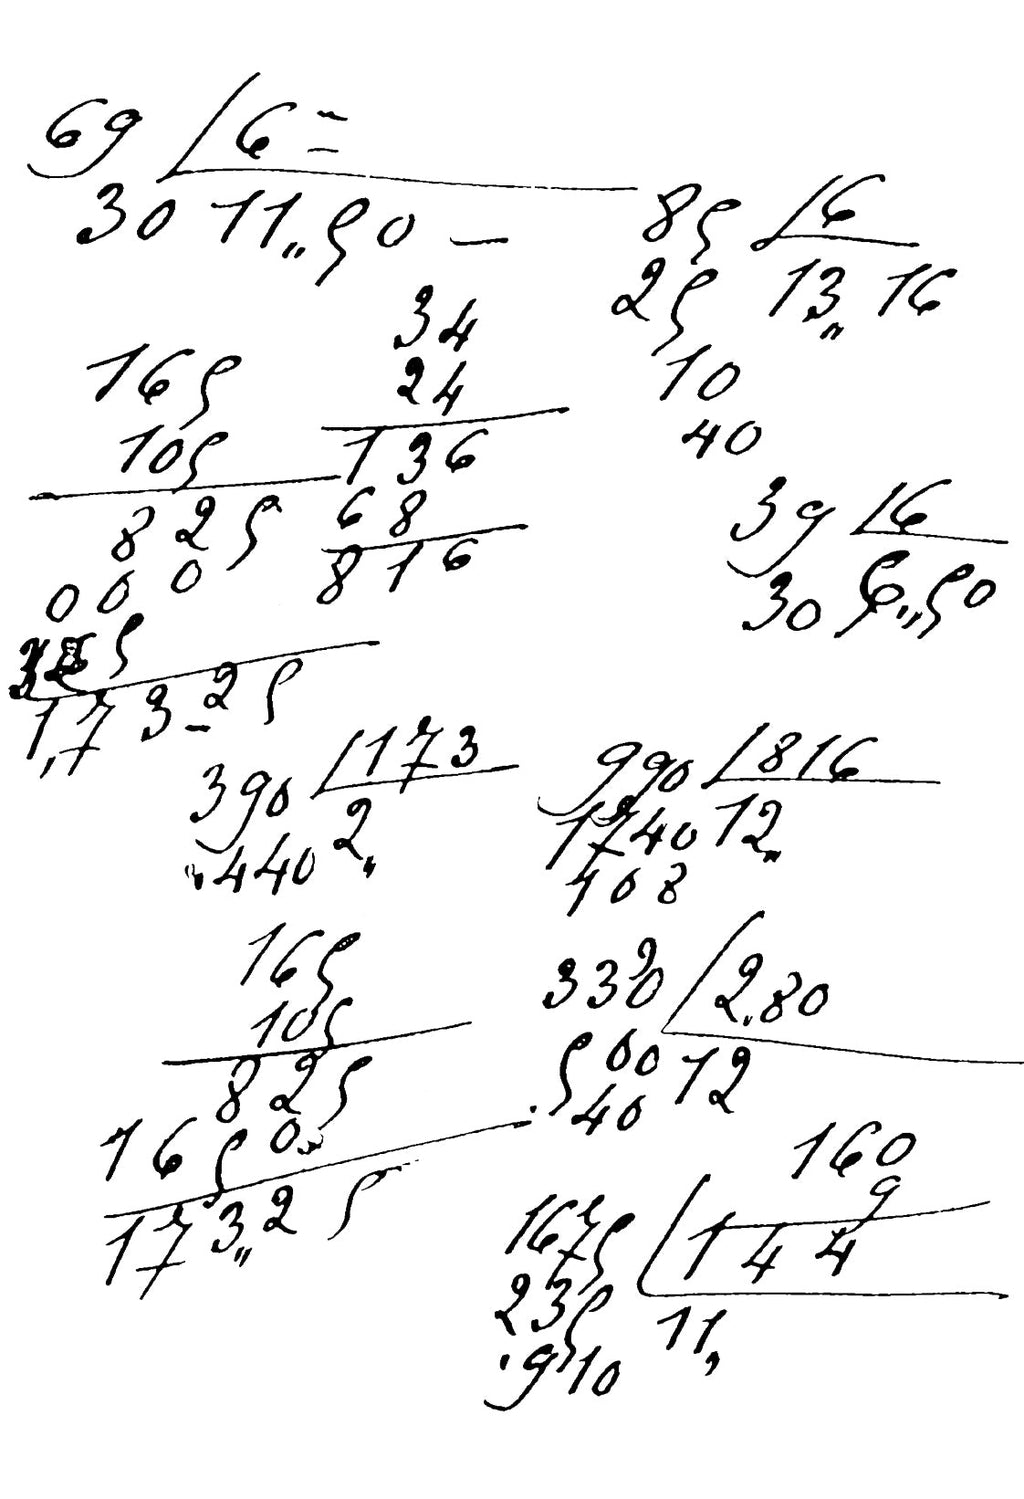 69 6 =
30 11,,50 —
85 6
25 13,, 16
10
40
34
24
136
68
816
165
105
825
000
5
1,73-25
39 6
30 6,,50
390 173
440 2,,
9990 816
1740 12,,
108
165
105
825
1650
173,,25
330 2.80
500 12
40
160
9
1675 144
235 11,
910